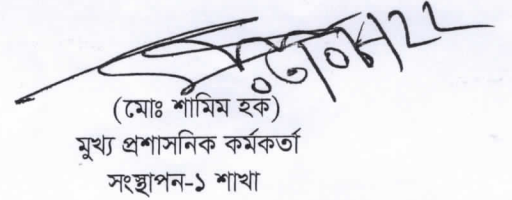 (মোঃ শামিম হক)
মুখ্য প্রশাসনিক কর্মকর্তা
সংস্থাপন-১ শাখা